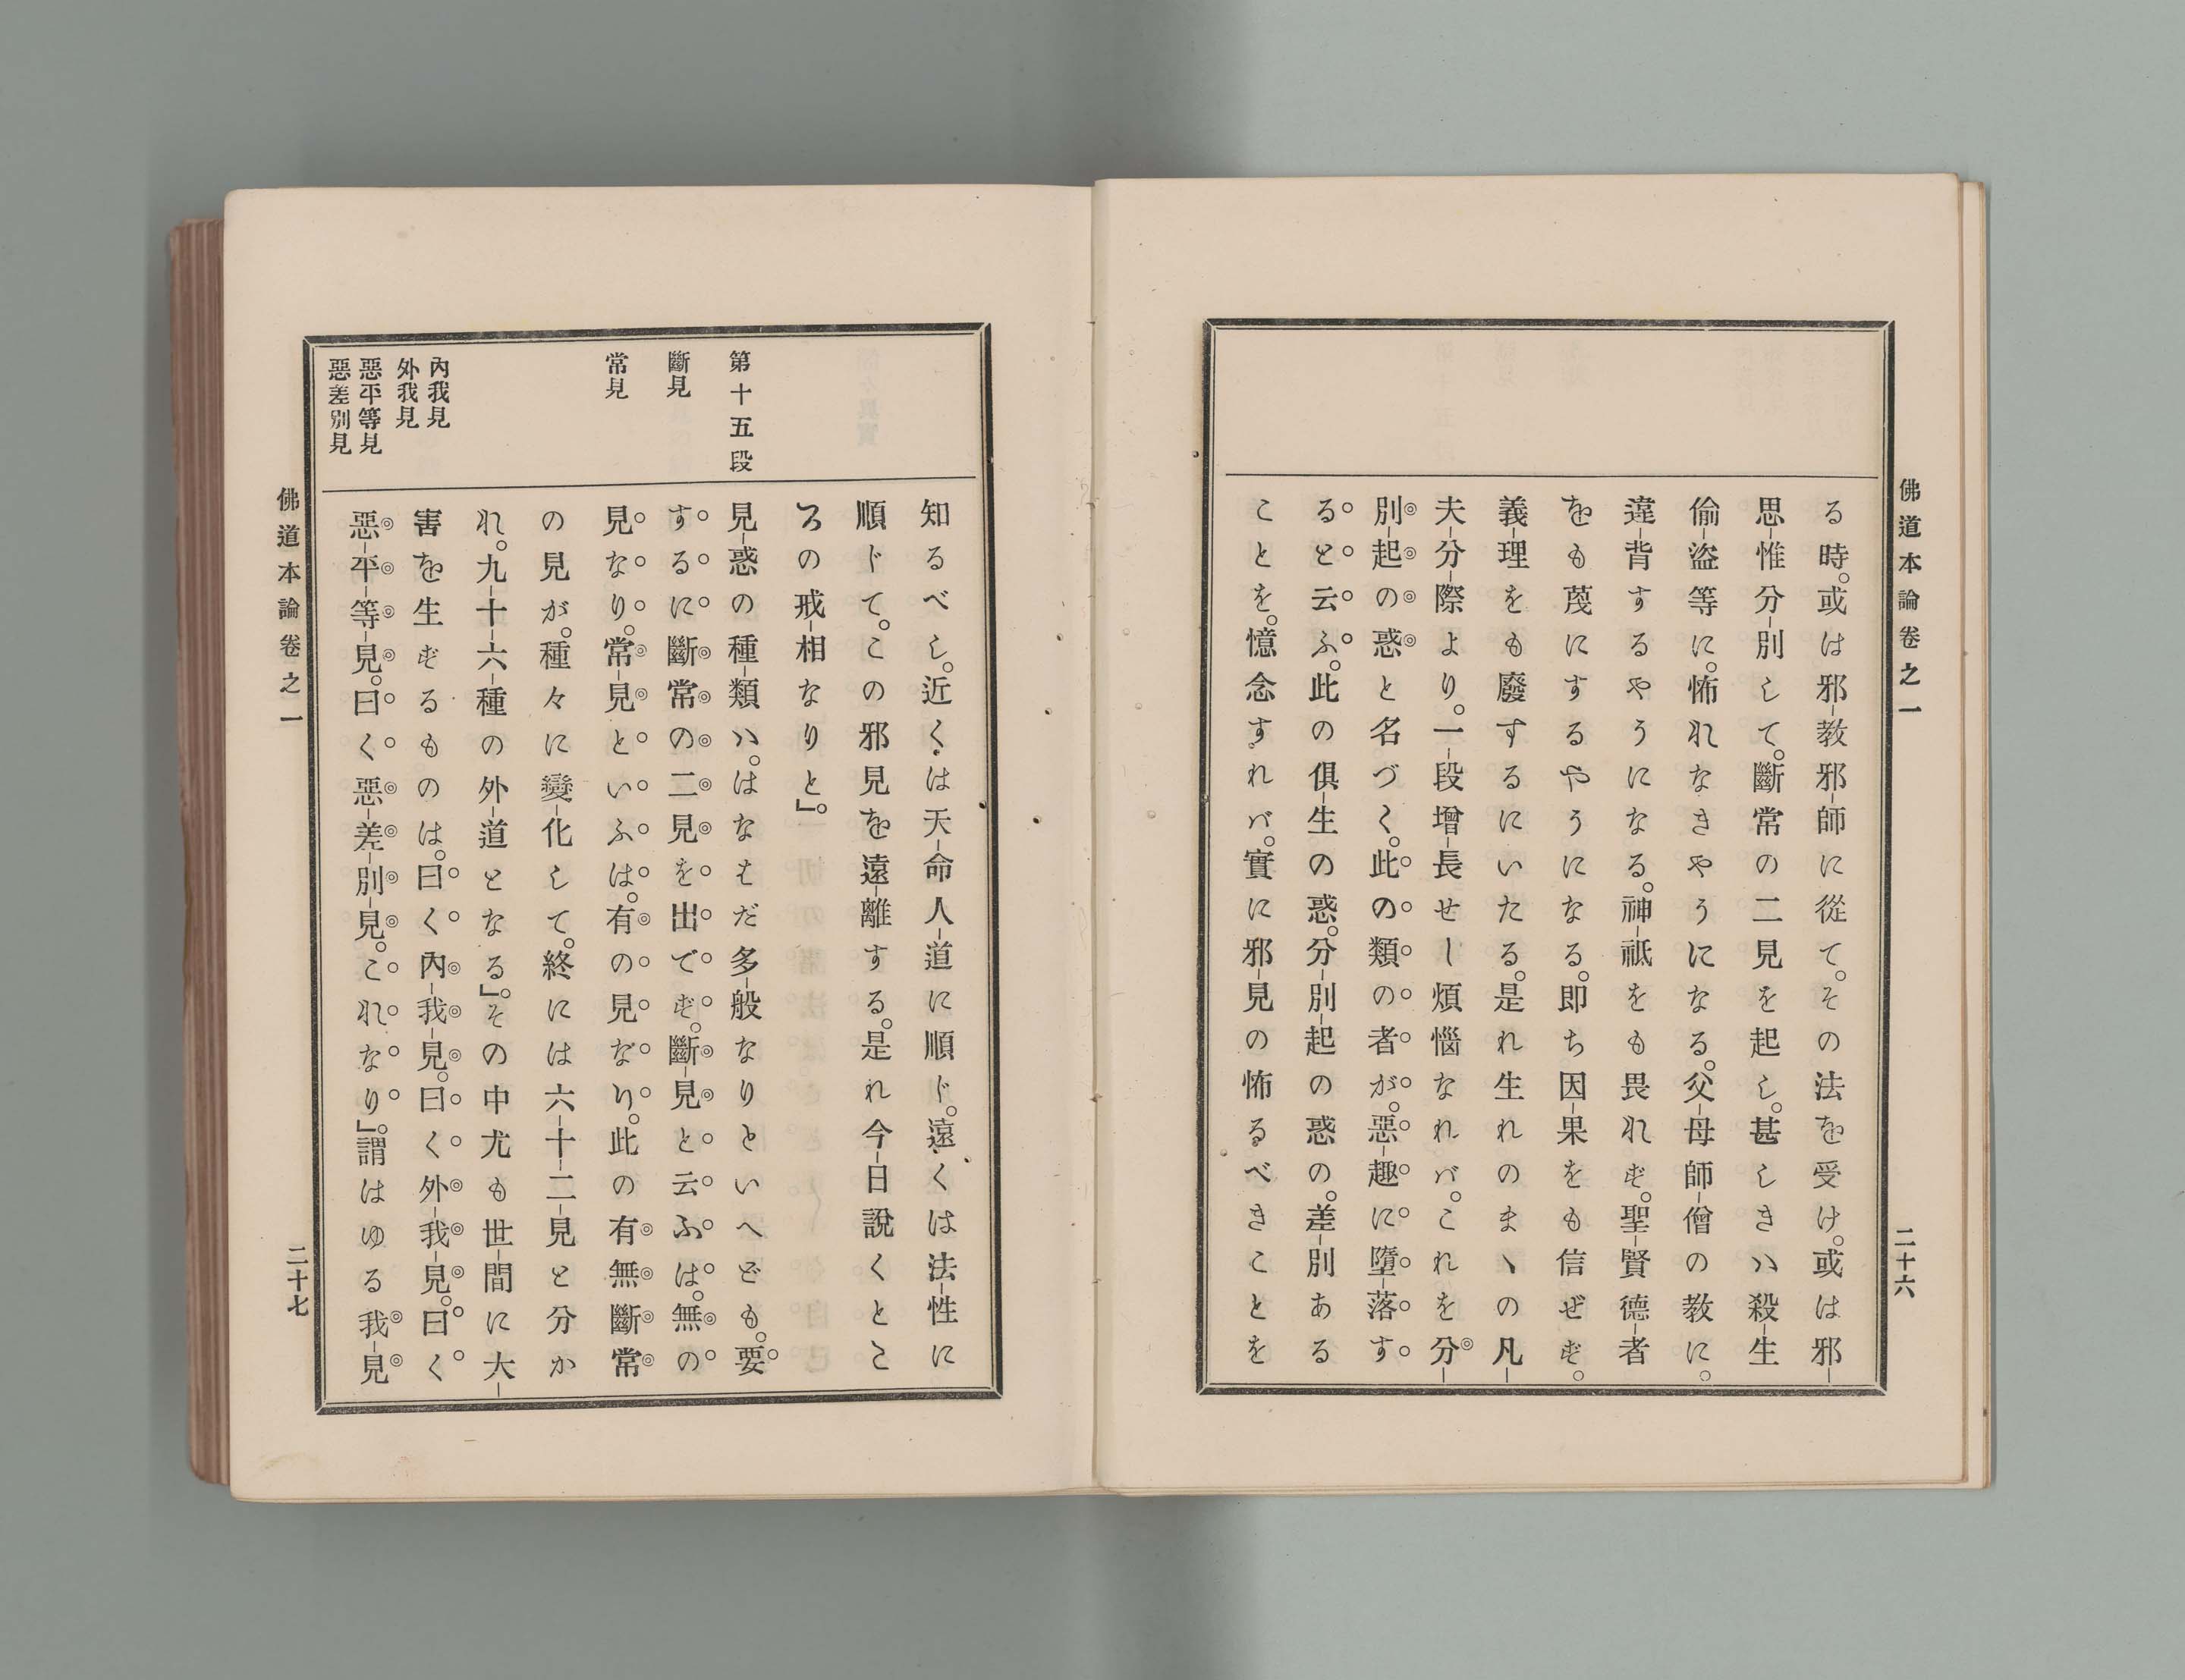 佛道本論卷之一
二十六
る時。或は邪-教邪-師に從て。その法を受け。或は邪-
思-惟分-別して。斷常の二見を起し。甚しきハ殺-生
偷-盜等に。怖れなきやうになる。父-母師-僧の教に。
違-背するやうになる。神-祗をも畏れず。聖-賢德-者
をも蔑にするやうになる。即ち因-果をも信ぜず。
義-理をも廢するにいたる。是れ生れのまヽの凡-
夫-分-際より。一-段增-長せし煩惱なれバ。これを分-
別-起の惑と名づく。此の類の者が。惡-趣に墮-落す
ると云ふ。此の俱-生の惑。分-別-起の惑の。差-別ある
ことを。憶念すれバ。實に邪-見の怖るべきことを
知るべし。近くは天-命人-道に順じ。遠くは法-性に
順じて。この邪見を遠-離する。是れ今-日說くとこ
ろの戒-相なりと」。
第十五段
見-惑の種-類ハ。はなはだ多-般なりといへども。要
斷見
するに斷常の二見を出でず。斷-見と云ふは。無の
常見
見なり。常-見といふは。有の見なり。此の有無斷常
の見が。種々に變-化して。終には六-十-二-見と分か
れ。九-十-六-種の外-道となる」。その中尤も世-間に大-
內我見
外我見
害を生ずるものは。曰く內-我-見。曰く外-我-見。曰く
惡平等見
惡差別見
惡-平-等-見。曰く惡-差-別-見。これなり」。謂はゆる我-見
佛道本論卷之一
二十七